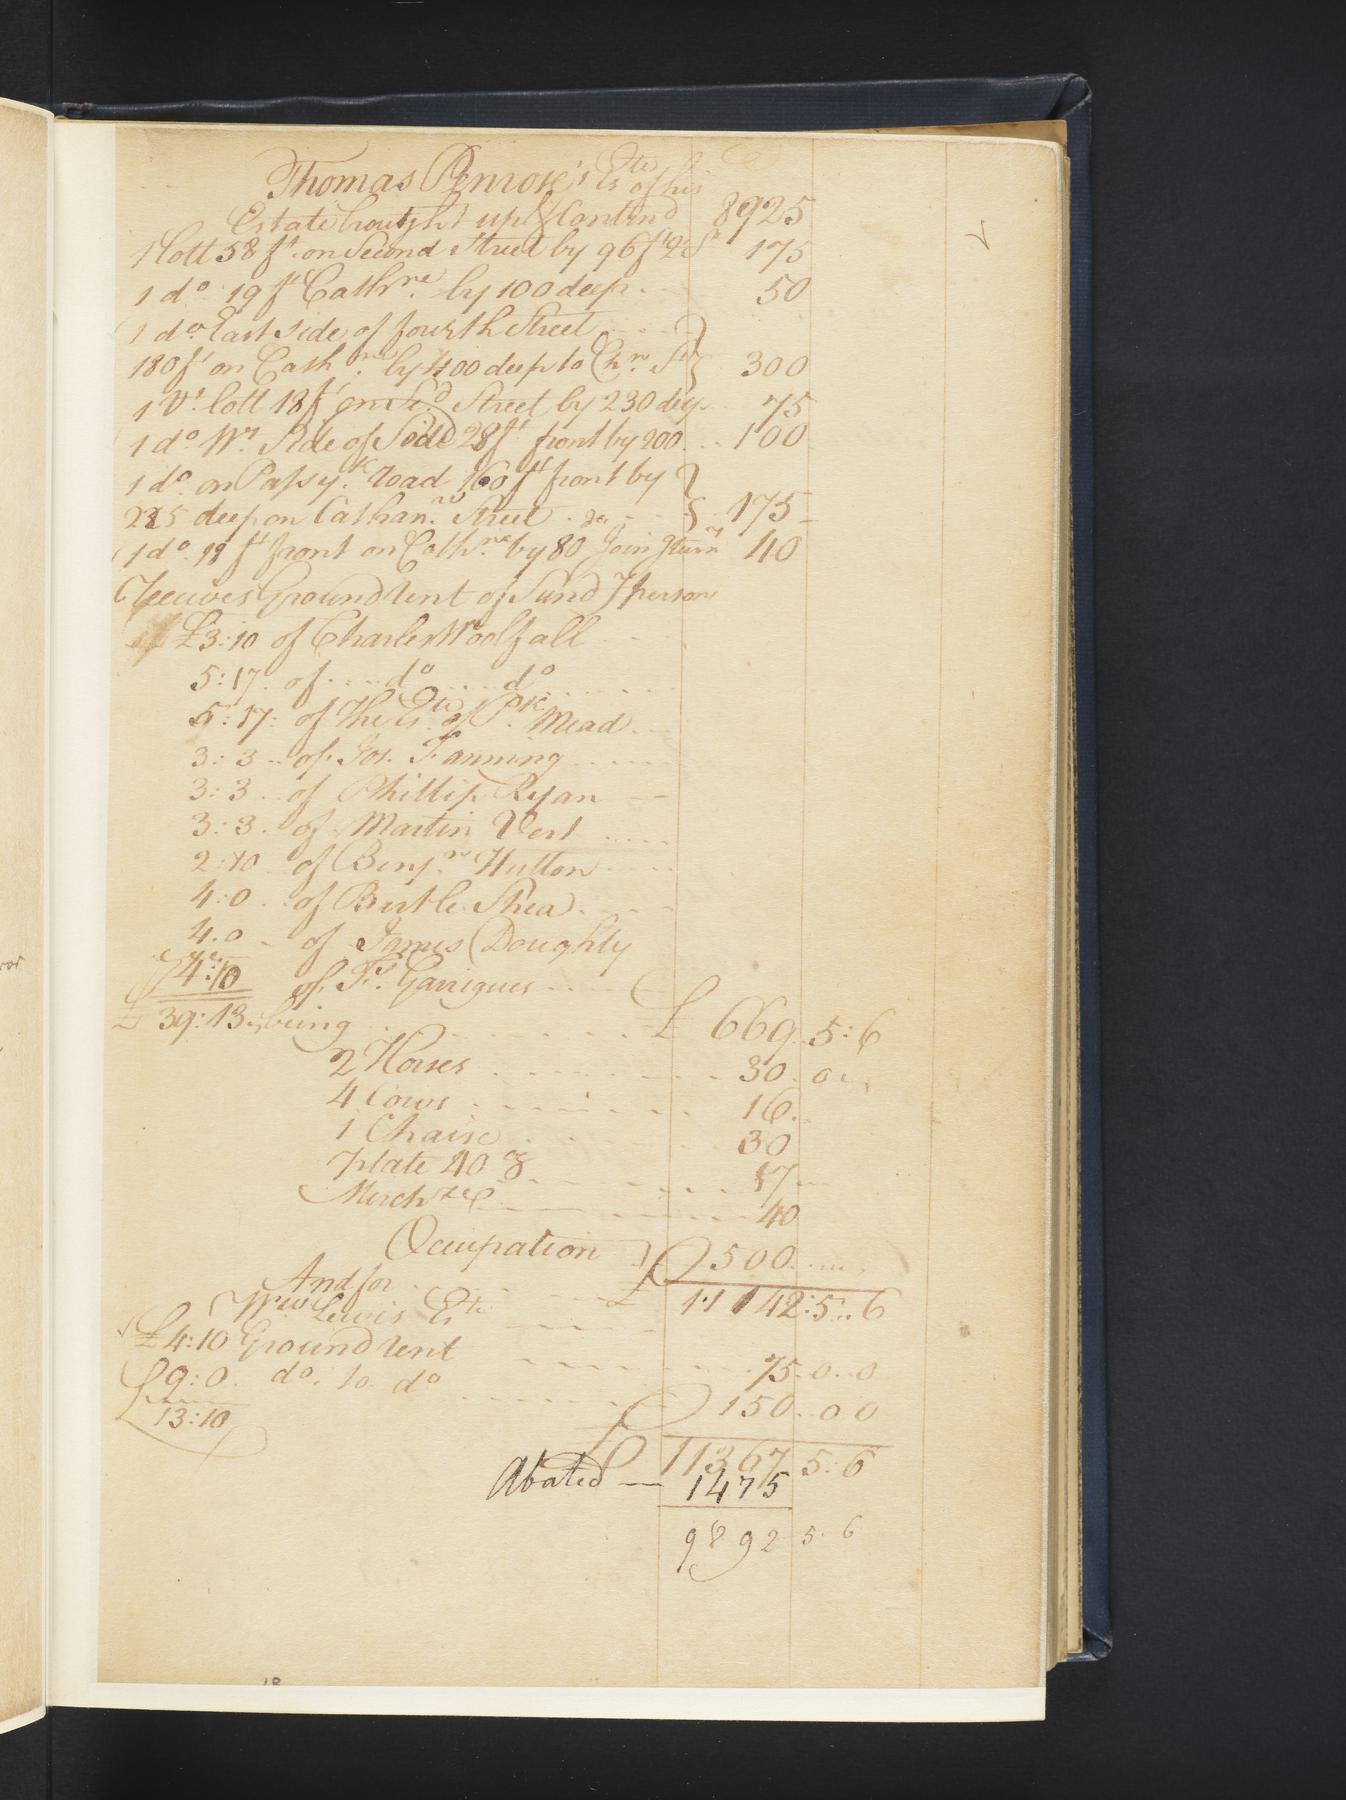 Thomas Penrose's Este of his
Estate brought up & Contind 8925
1 lott 58 ft on Second Street by 96 ft 175
1 do 19 ft Cathrne by 100 deep 50
1 do East side of fourth Street
180 ft on Cath.ne by 400 deep to Chrn St 300
1 Vt lott 18 ft on Street by 230 deep 75
1 do Wt Side of 28 ft front by 200 .. 100
1 do on Passy.k road 160 ft front by
deep on Cathan.ne Street 175
1 do 19 ft front on Cath.ne by 80 Join 40
Receives Ground Rent of Sund'y persons
£3:10 of Charles Woolfall
5:17 of do do
5:17: of the Este of P.k Mead
3:3 of Jos. Fanning
3:3 of Phillip Ryan
3:3 of Martin Vert
2:10 of Benj.n Hutton
4:0 of Bartle Shea
4.0 of James Doughty
4:10 of Fs Garrigues
£ 39:13 being £ 669 5:6
2 Horses 30. 0
4 Cows 16.
1 Chaise 30
plate 40 oz 17
Merchze 40
Occupation 500
£ 11142:5..6
And for
Wm Lewis Este
£4:10 Ground Rent 75..0..0
£9:0. do. to do 150..00
£13:10
£ 11367 5:6
Abated — 1475
9892 5.6